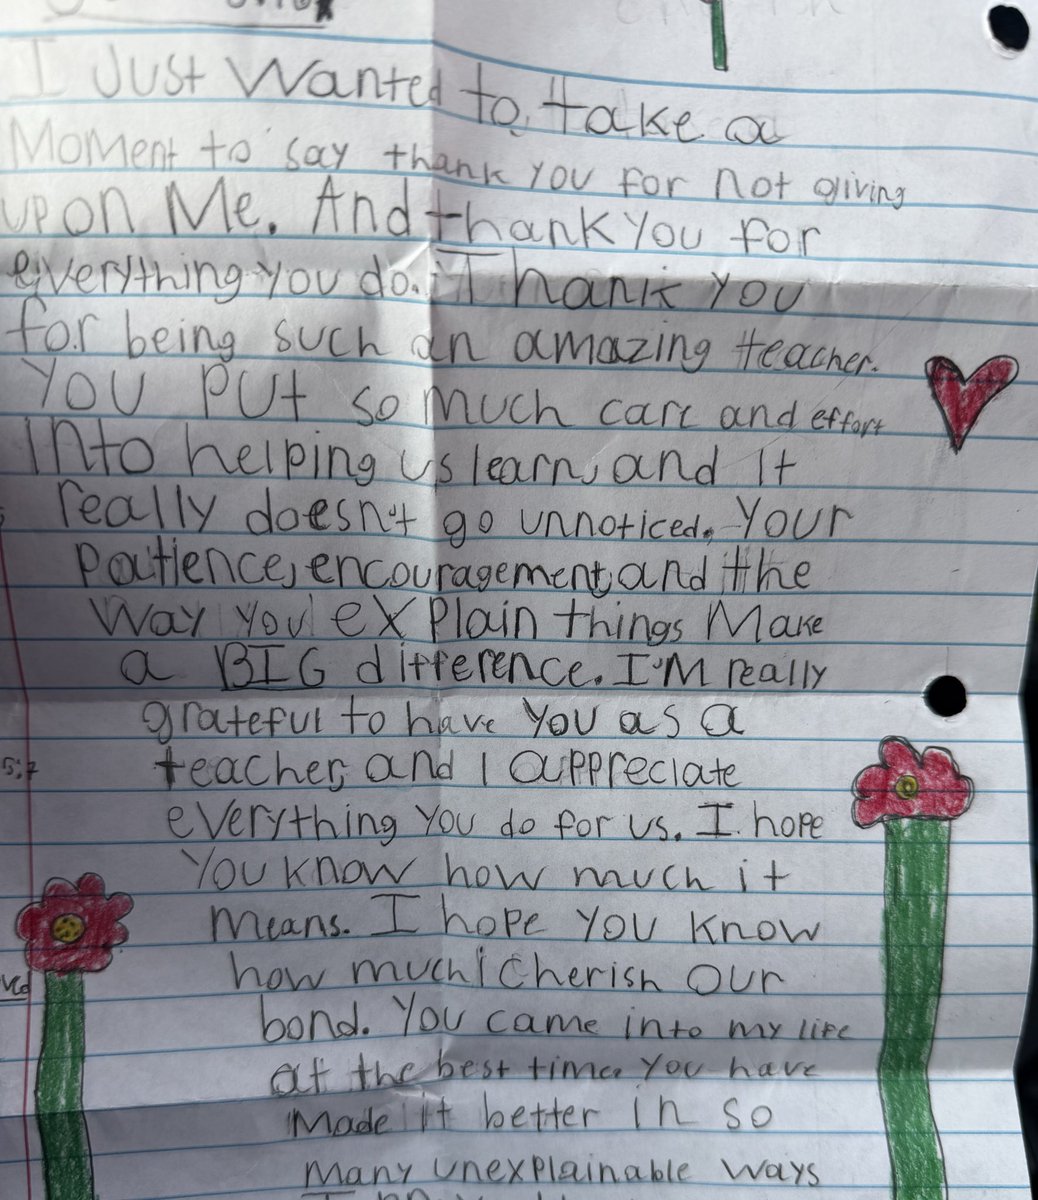 I Just Wanted to take a
Moment to say thank you for not giving
up on Me. And thank you for
everything you do. Thank you
for being such an amazing teacher.
You put so much care and effort
Into helping us learn, and It
really doesn't go unnoticed. Your
patience, encouragement, and the
Way you explain things Make
a BIG difference. I'M really
grateful to have you as a
teacher, and I appreciate
everything you do for us. I hope
You know how much it
Means. I hope you know
how much I cherish our
bond. You came into my life
at the best time you have
Made it better in so
Many unexplainable ways